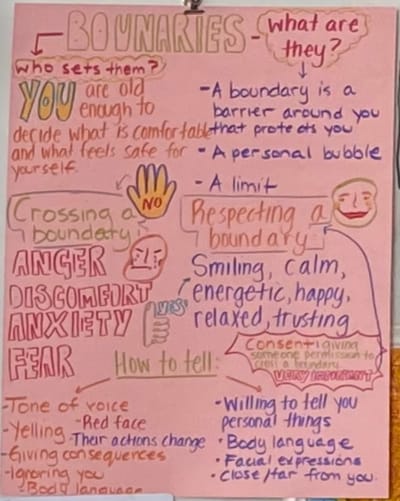 BOUNARIES - what are they?
who sets them?
YOU are old enough to
decide what is comfortable
and what feels safe for
yourself.
- A boundary is a
barrier around you
that protects you
- A personal bubble
- A limit
NO
Crossing a
boundary
ANGER
DISCOMFORT
ANXIETY
FEAR
Respecting a
boundary
Smiling, calm,
energetic, happy,
relaxed, trusting
YES
Consent: giving
someone permission to
cross a boundary
VERY IMPORTANT
How to tell:
- Tone of voice
- Yelling - Red face
- Their actions change
- Giving consequences
- Ignoring you
- Body language
• Willing to tell you
personal things
• Body language
• Facial expressions
• Close/far from you.